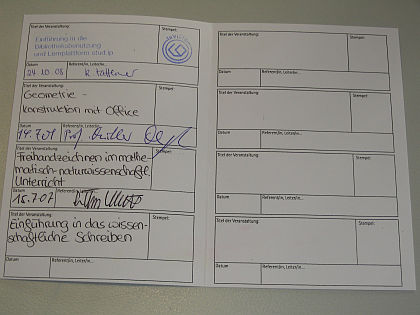 Titel der Veranstaltung:
Stempel:
Einführung in die
Bibliotheksbenutzung
und Lernplattform stud.ip
Datum
Referent/in, Leiter/in...
24.10.08
Titel der Veranstaltung:
Stempel:
Geometrie-
konstruktion mit Office
Datum
Referent/in, Leiter/in...
14.7.07 Prof.
Titel der Veranstaltung:
Stempel:
Freihandzeichnen im mathe-
matisch-naturwissenschaftl.
Unterricht
Datum
Referent/in, Leiter/in...
15.7.07
Titel der Veranstaltung:
Stempel:
Einführung in das wissen-
schaftliche Schreiben
Datum
Referent/in, Leiter/in...
Titel der Veranstaltung:
Stempel:
Datum
Referent/in, Leiter/in...
Titel der Veranstaltung:
Stempel:
Datum
Referent/in, Leiter/in...
Titel der Veranstaltung:
Stempel:
Datum
Referent/in, Leiter/in...
Titel der Veranstaltung:
Stempel:
Datum
Referent/in, Leiter/in...